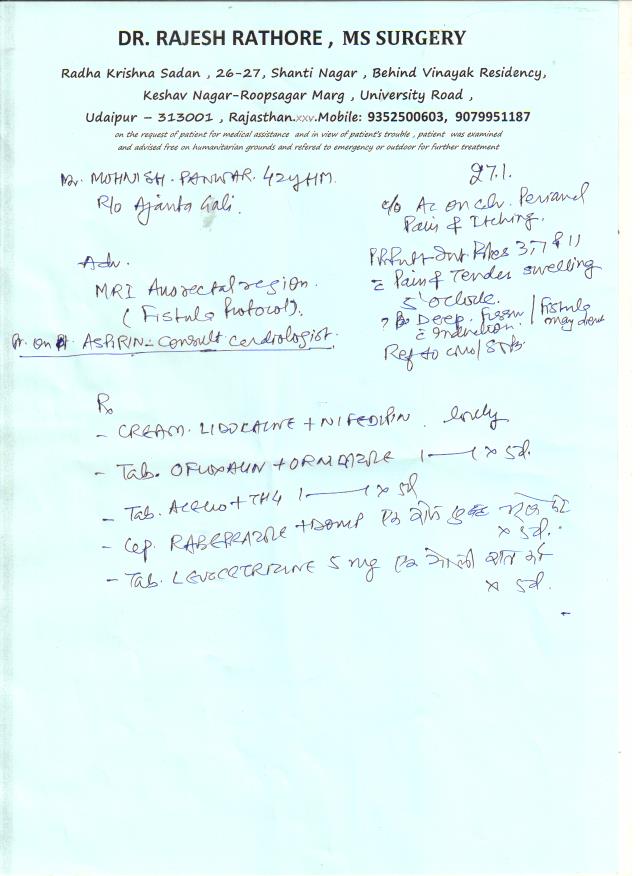 DR. RAJESH RATHORE , MS SURGERY
Radha Krishna Sadan , 26-27, Shanti Nagar , Behind Vinayak Residency,
Keshav Nagar-Roopsagar Marg , University Road ,
Udaipur – 313001 , Rajasthan.xxv.Mobile: 9352500603, 9079951187
on the request of patient for medical assistance and in view of patient's trouble , patient was examined
and advised free on humanitarian grounds and refered to emergency or outdoor for further treatment
MOHNISH PANWAR 42y HM.
R/o Ajanta Gali.
27.1.
c/o Ac on Perianal
Pain & Itching.
Piles 3, 7 & 11
Pain & Tender swelling
5 'O clock.
? Deep / Fistula
Induration.
Ref to
Adv.
MRI Anorectal region.
(Fistula Protocol).
Pt. on ASPIRIN - Consult cardiologist.
Rx
- CREAM. LIDOCAINE + NIFEDIPIN.
- Tab. OFLOXACIN + ORNIDAZOLE 1——1 x 5d.
- Tab. ACECLO + TH4 1——1 x 5d
- Cap. RABEPRAZOLE + DOMP एक सुबह x 5d.
- Tab. LEVOCETRIZINE 5 mg एक गोली शाम x 5d.